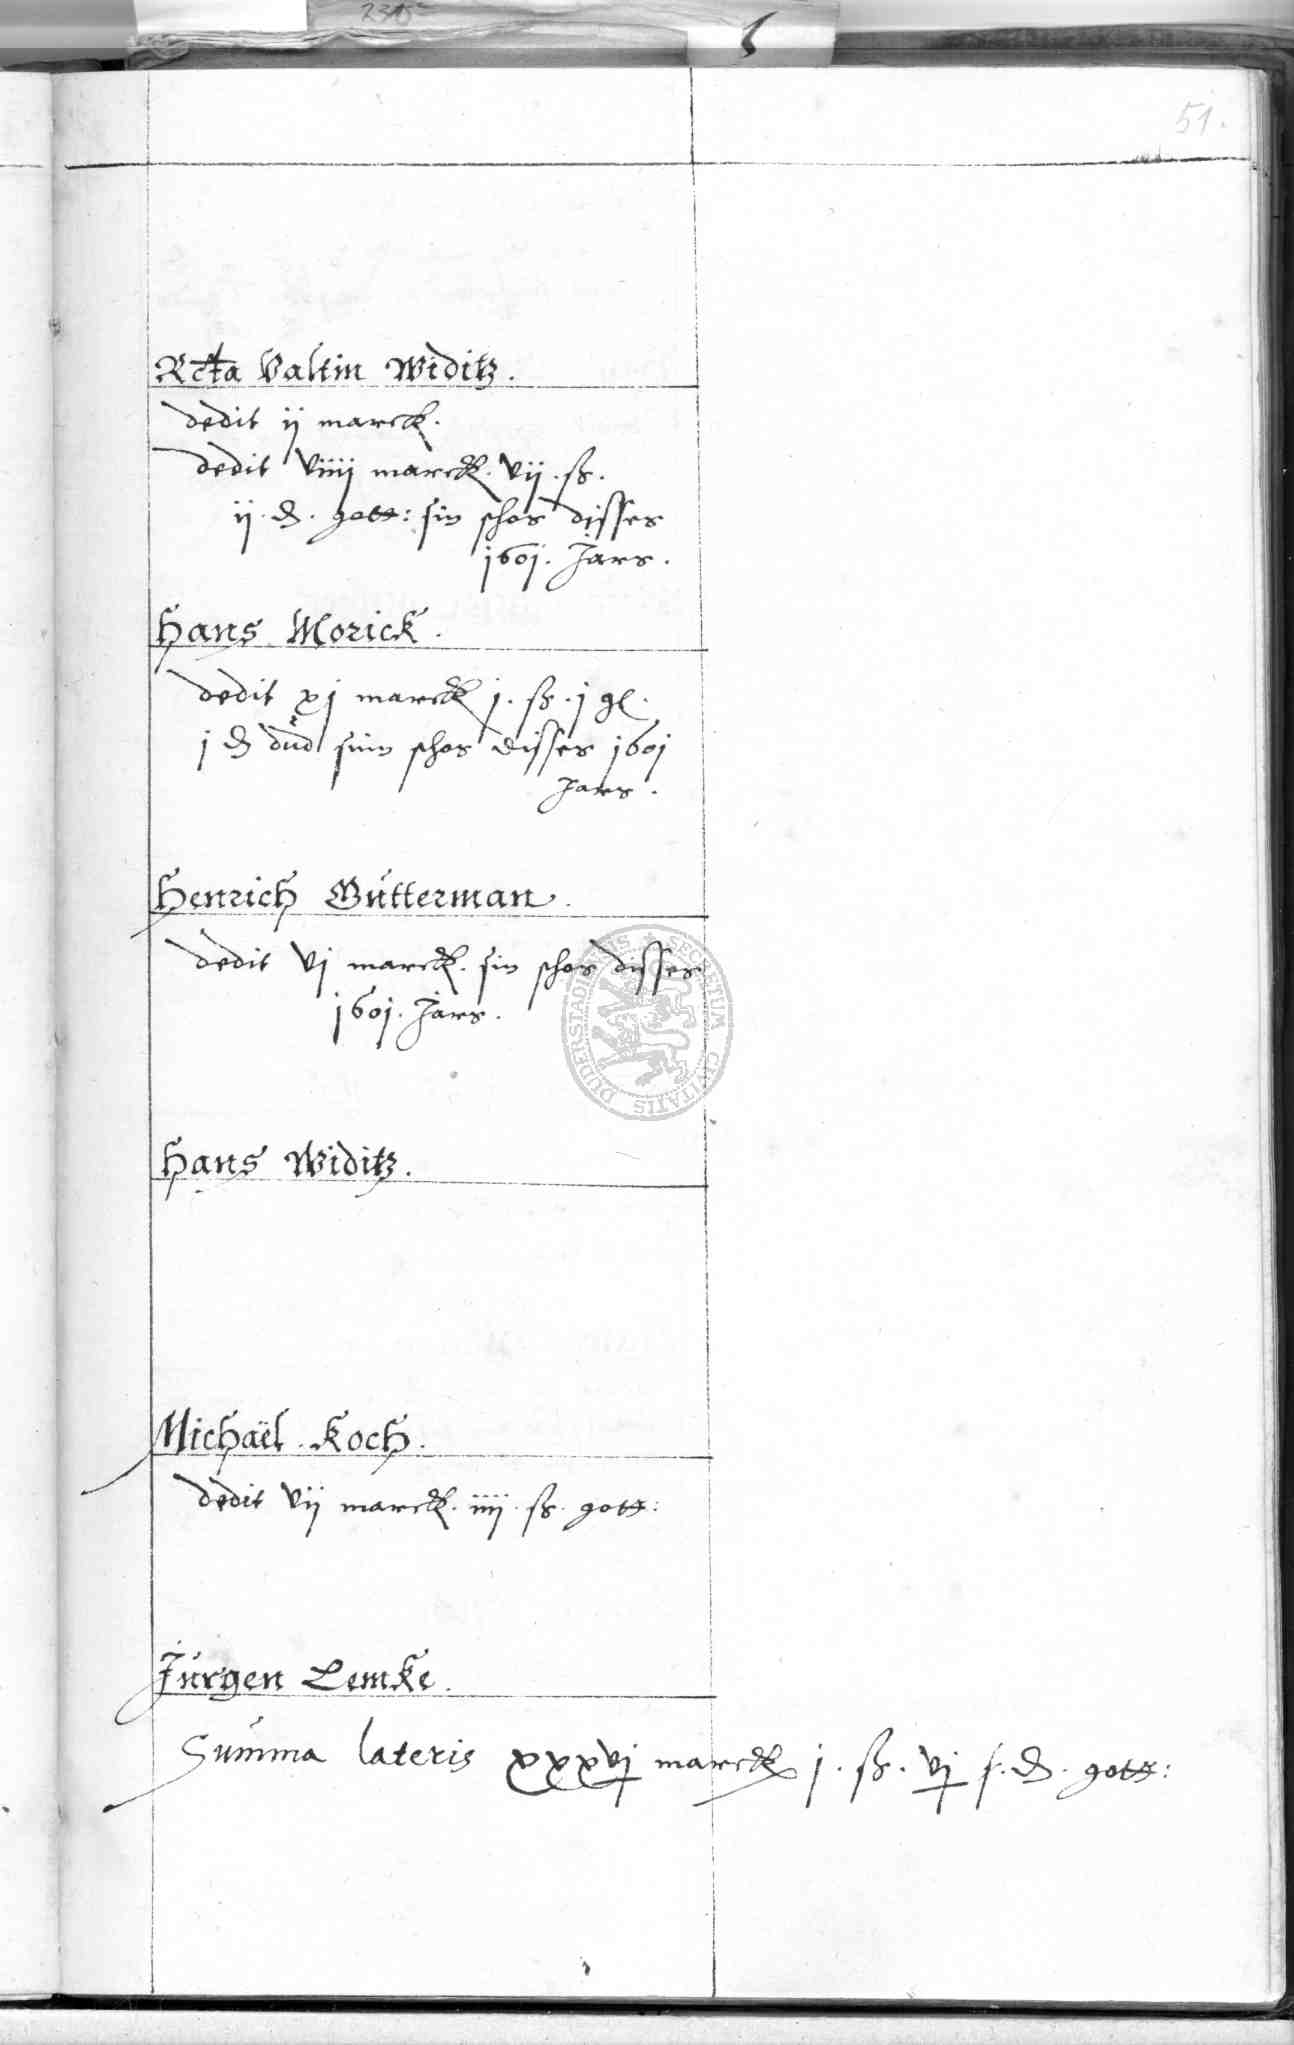 51.
Rcta Valtin Widitz.
dedit ij marck.
dedit viiij marck. vij. ß.
ij. d. gott: sin schos disses
1601. Jars.
Hans Morick.
dedit xj marck j. ß. j gl.
j d dnd sinn schos disses 1601
Jars.
Henrich Gutterman.
dedit vj marck. sin schos disses
1601. Jars.
SECRETUM CIVITATIS DUDERSTADIENSIS
Hans Widitz.
Michaël Koch.
dedit vij marck. iiij. ß. gott:
Jurgen Lemke.
Summa lateris xxxvj marck j. ß. vj d. gott: